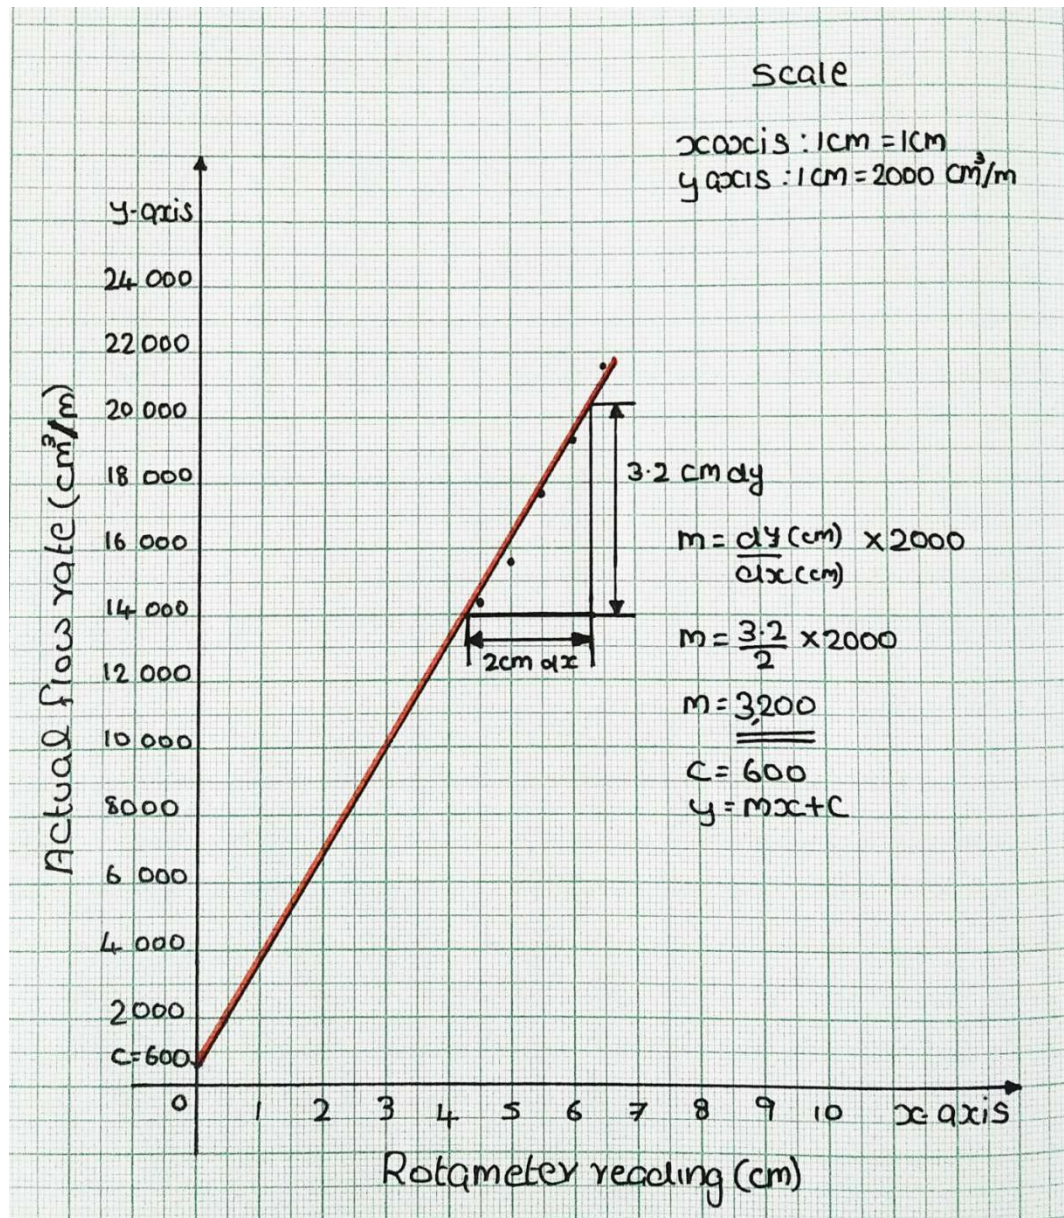 scale
x axis : 1cm = 1cm
y axis : 1cm = 2000 cm³/m
y-axis
24 000
22 000
20 000
18 000
16 000
14 000
12 000
10 000
8000
6 000
4 000
2000
C=600
Actual flow rate (cm³/m)
3.2 cm dy
2cm dx
m = dy (cm) × 2000
dx (cm)
m = 3.2 × 2000
2
m = 3,200
C = 600
y = mx+C
0 1 2 3 4 5 6 7 8 9 10 x-axis
Rotameter reading (cm)